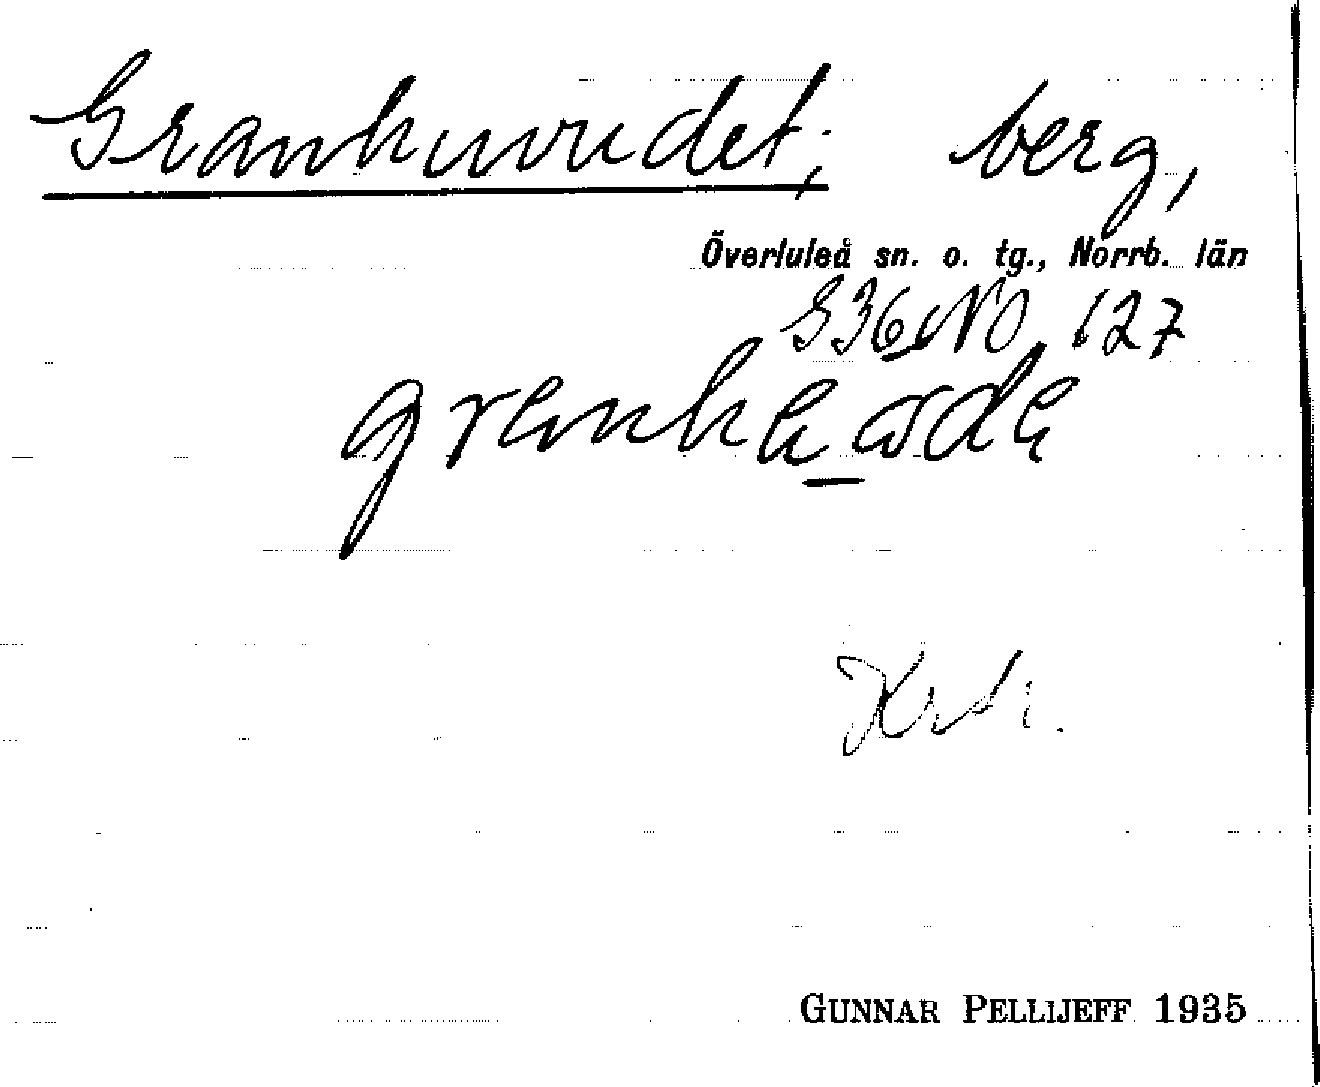 Granhuvudet, berg,
Överluleå sn. o. tg., Norrb. län
S36NO 127
Krti.
GUNNAR PELLIJEFF 1935